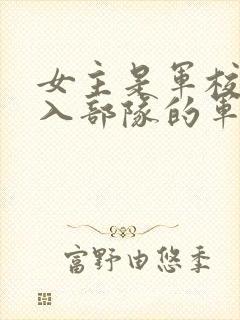 女主是軍校
入部隊的軍
富野由悠季